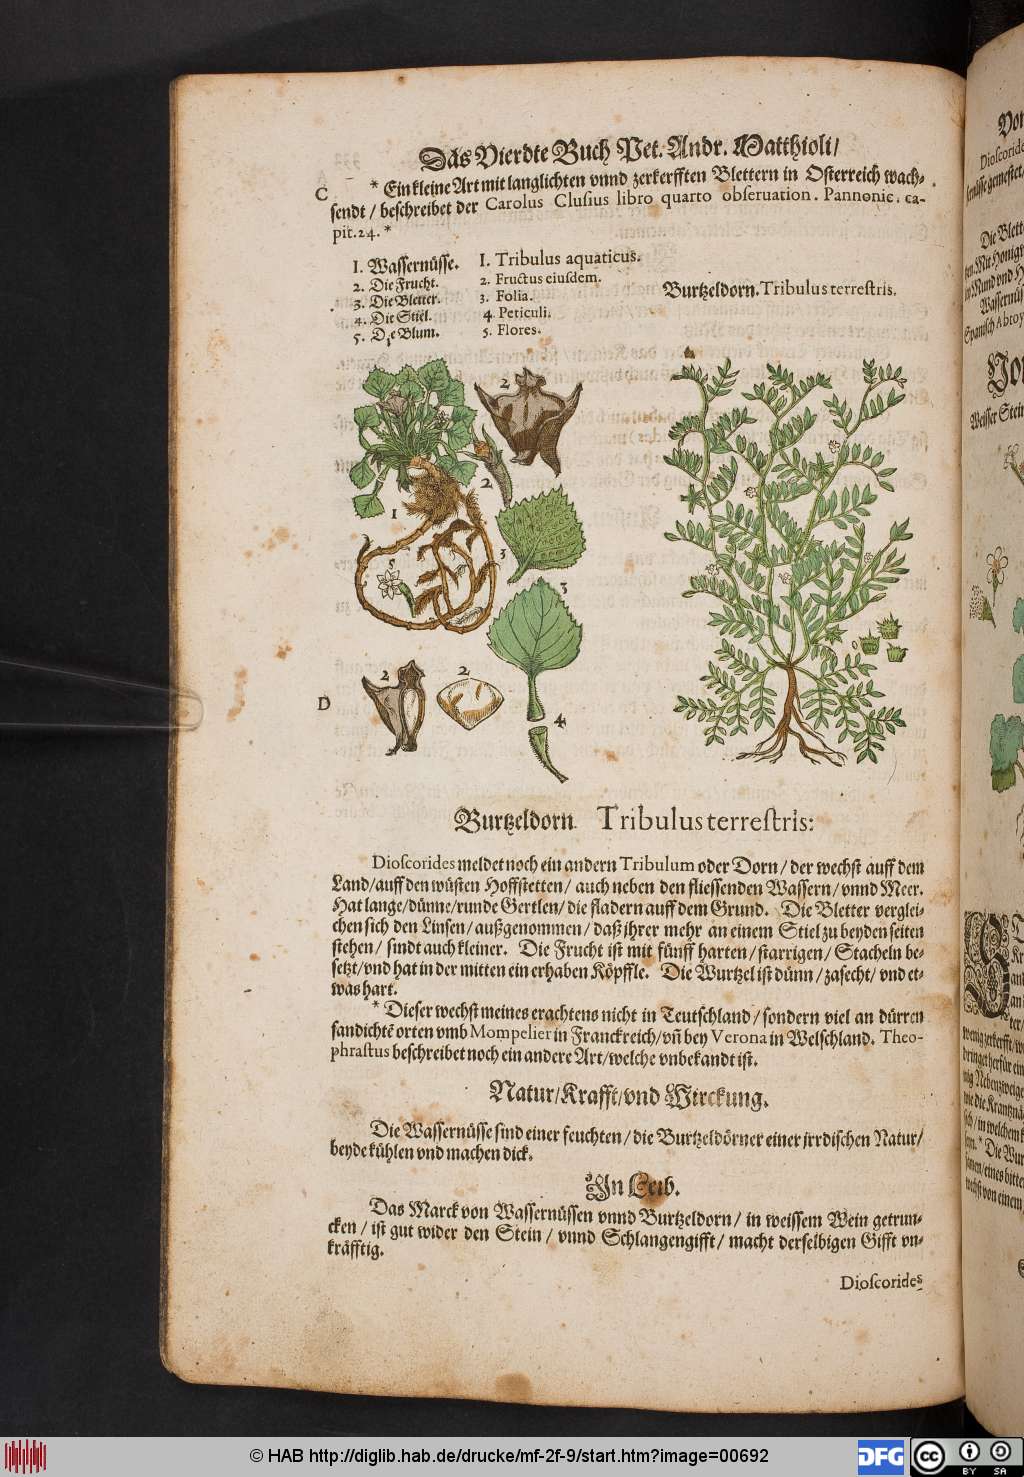 Das Vierdte Buch Pet. Andr. Matthioli/
C
* Ein kleine Art mit langlichten vnnd zerkerfften Blettern in Osterreich wach-
sendt / beschreibet der Carolus Clusius libro quarto obseruation. Pannonic. ca-
pit. 24. *
1. Wassernüsse.
2. Die Frucht.
3. Die Bletter.
4. Die Stiel.
5. Die Blum.
1. Tribulus aquaticus.
2. Fructus eiusdem.
3. Folia.
4. Peticuli.
5. Flores.
Burtzeldorn. Tribulus terrestris.
2
2
1
3
5
3
2
2
4
D
Burtzeldorn. Tribulus terrestris:
Dioscorides meldet noch ein andern Tribulum oder Dorn / der wechst auff dem
Land/auff den wüsten Hoffstetten / auch neben den fliessenden Wassern / vnnd Meer.
Hat lange/dünne/runde Gertlen/ die fladern auff dem Grund. Die Bletter verglei-
chen sich den Linsen/ außgenommen / daß jhrer mehr an einem Stiel zu beyden seiten
stehen / sindt auch kleiner. Die Frucht ist mit fünff harten / starrigen / Stacheln be-
setzt/vnd hat in der mitten ein erhaben Köpffle. Die Wurtzel ist dünn / zasecht/ vnd et-
was hart.
* Dieser wechst meines erachtens nicht in Teutschland / sondern viel an dürren
sandichtē orten vmb Mompelier in Franckreich/vñ bey Verona in Welschland. Theo-
phrastus beschreibet noch ein andere Art/welche vnbekandt ist.
Natur/Krafft/vnd Wirckung.
Die Wassernüsse sind einer feuchten / die Burtzeldörner einer jrrdischen Natur/
beyde kühlen vnd machen dick.
In Leib.
Das Marck von Wassernüssen vnnd Burtzeldorn / in weissem Wein getrun-
cken / ist gut wider den Stein / vnnd Schlangengifft / macht derselbigen Gifft vn-
kräfftig.
Dioscorides
© HAB http://diglib.hab.de/drucke/mf-2f-9/start.htm?image=00692
DFG
cc
BY SA